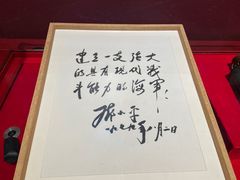 建立一支强大
的具有现代战
斗能力的海軍！
邓小平
一九七九年八月二日